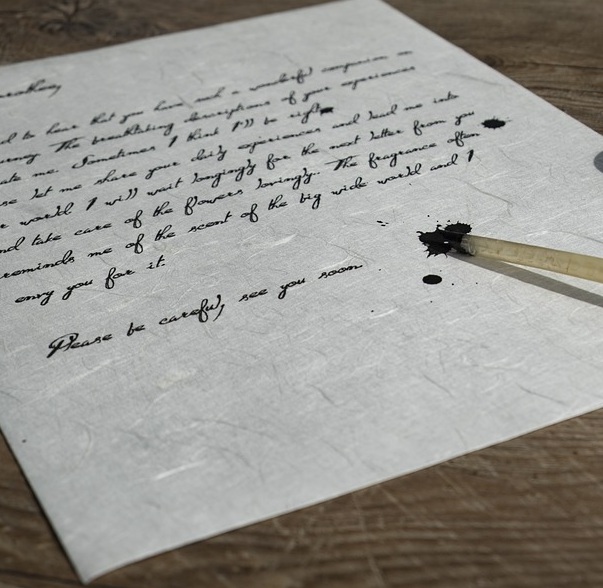 rother,
d to hear that you have such a wonderful companion on
urney. The breathtaking descriptions of your experiences
ate me. Sometimes I think I'll be right
se let me share your daily experiences and lead me into
r world I will wait longingly for the next letter from you
nd take care of the flowers lovingly. The fragrance often
reminds me of the scent of the big wide world and I
envy you for it.
Please be careful, see you soon